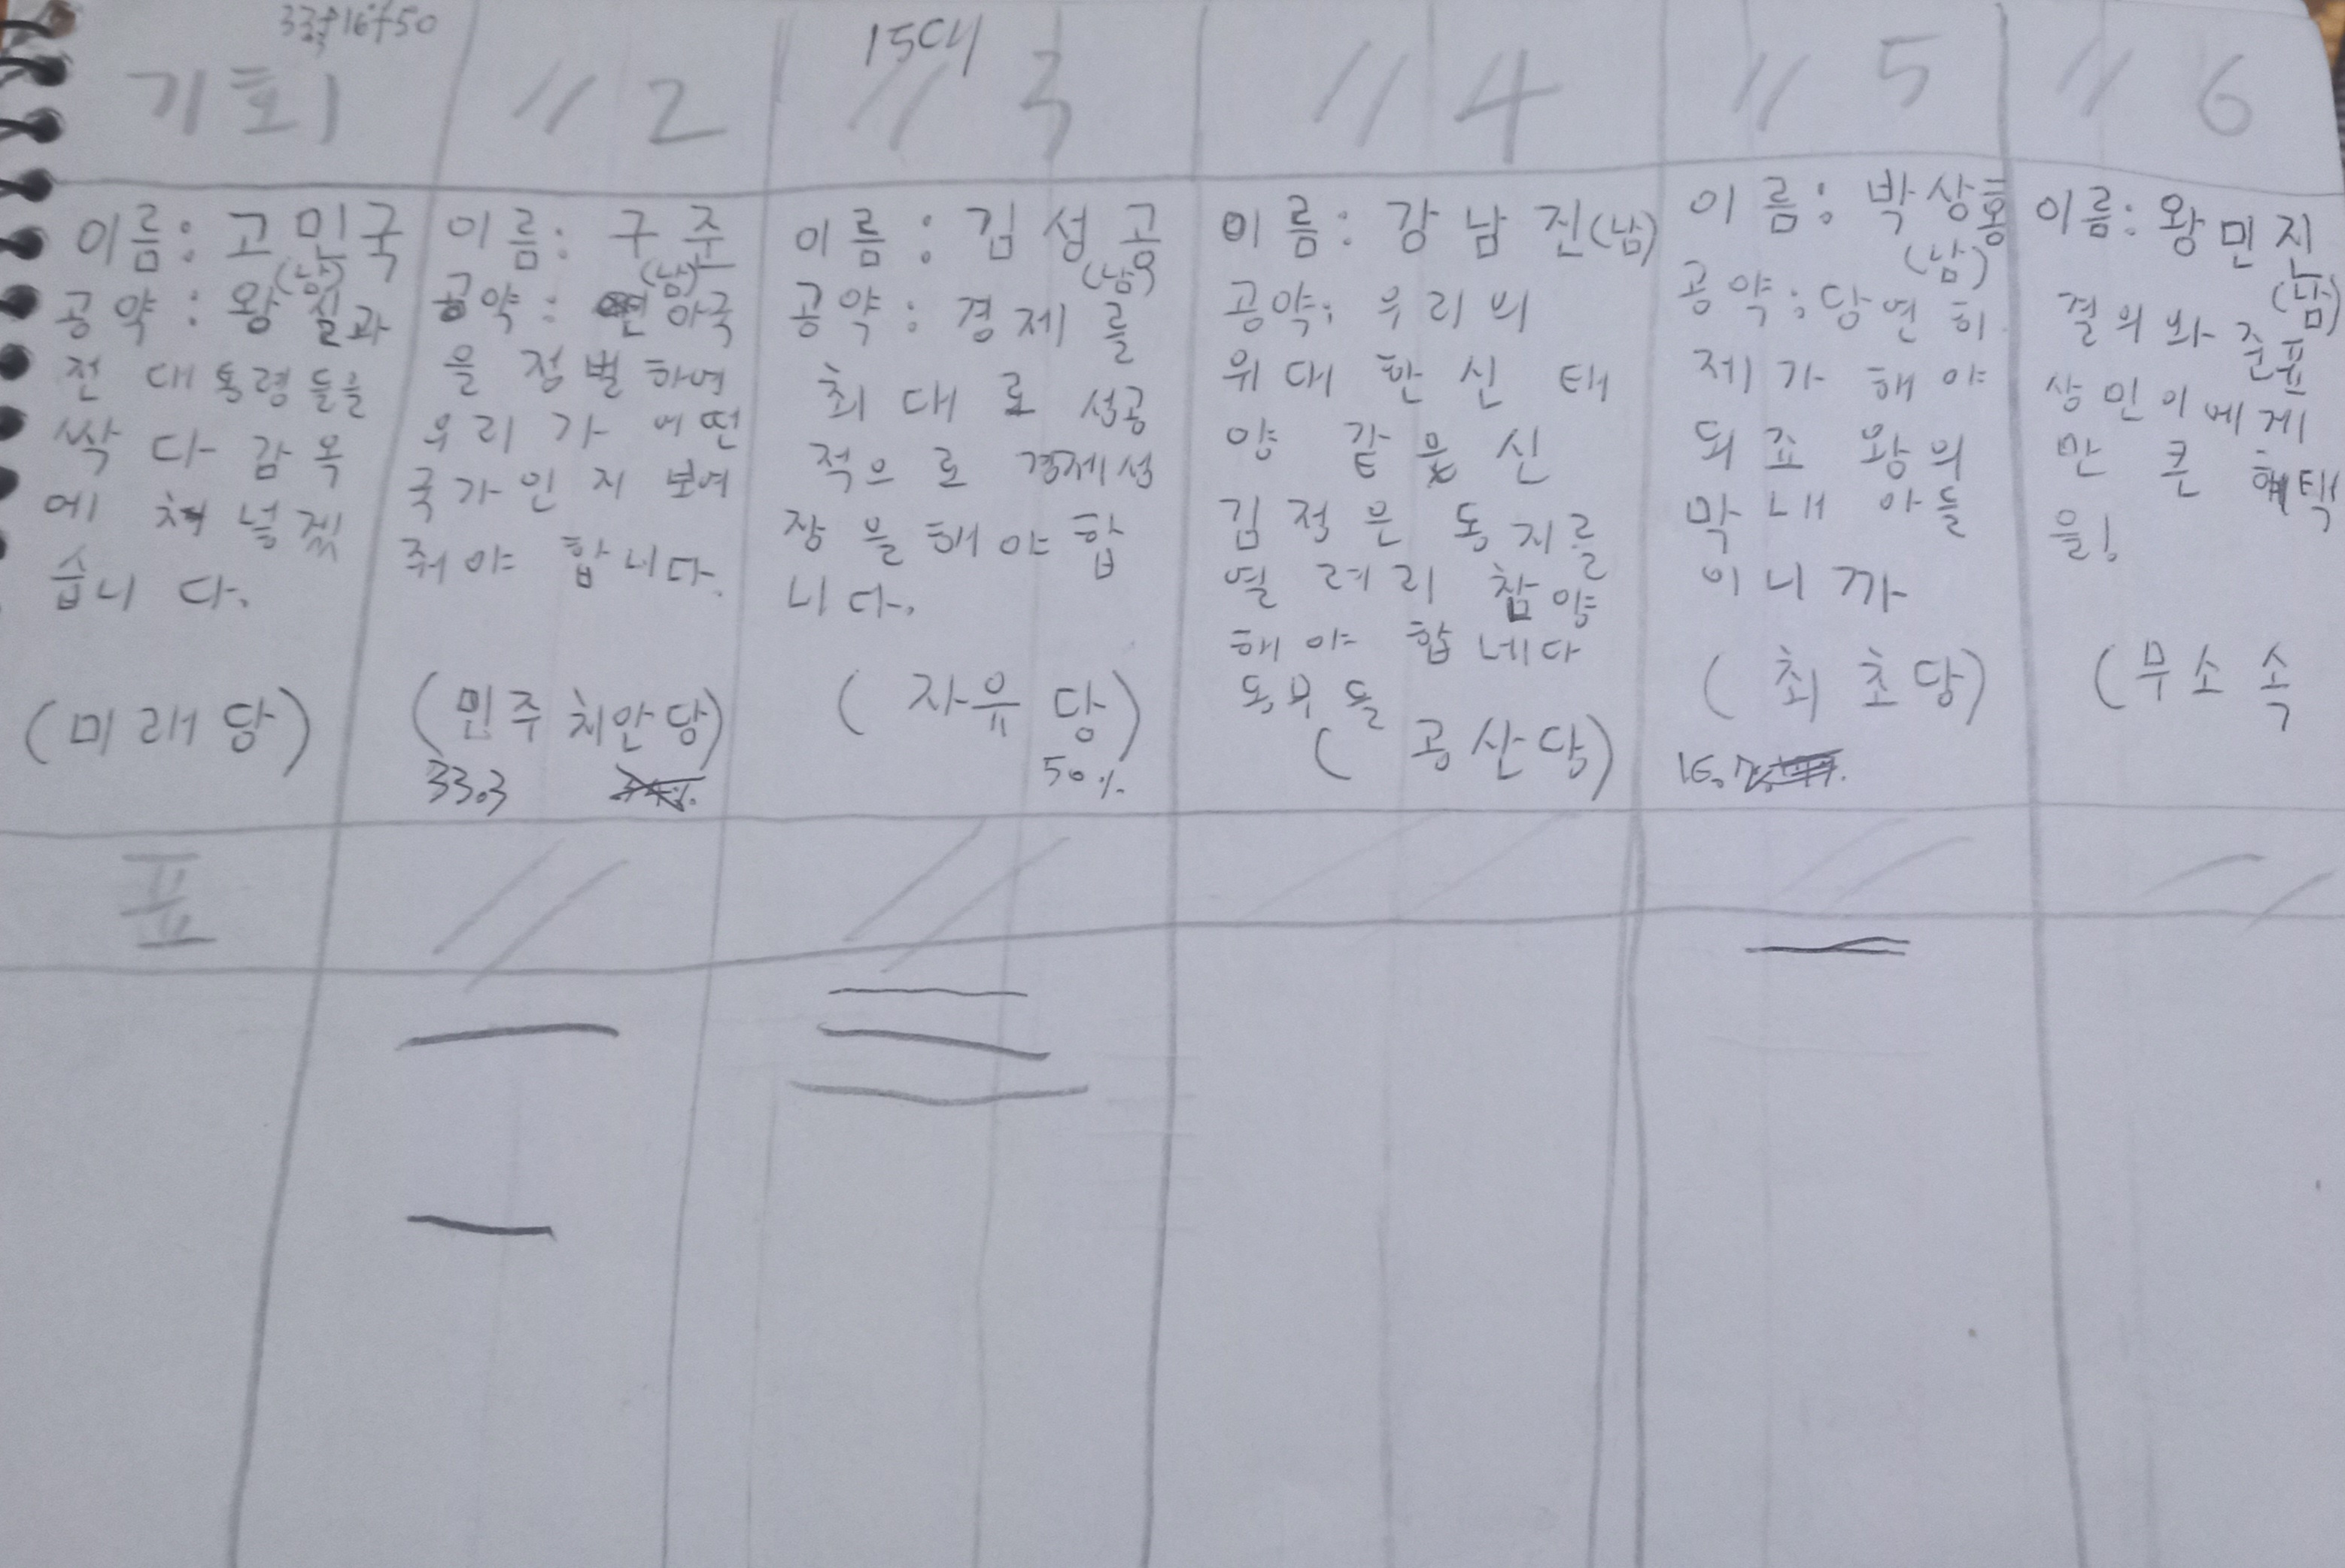 33.3+16.7+50
15대
기호1
// 2
// 3
// 4
// 5
// 6
이름: 고민국
(남)
공약: 왕실과
전 대통령들을
싹 다 감옥
에 쳐 넣겠
습니 다.
(미래당)
이름: 구주
(남)
공약: 아국
을 정벌하여
우리가 어떤
국가인지 보여
줘야 합니다.
(민주치안당)
33.3
이름: 김성공
(남)
공약: 경제를
최대로 성공
적으로 경제성
장을 해야합
니다.
(자유당)
50%
이름: 강남진(남)
공약: 우리의
위대한 신 태
양 같은 신
김적은 동지를
열려리 참양
해야 합네다
동무들
(공산당)
이름: 박상
(남)
공약: 당연히
제가 해야
되죠 왕의
막내 아들
이니까
(최초당)
16.7%
이름: 왕민진
(남)
결의와
상민이에게
만 큰 혜택
을!
(무소속
표 // // // // //